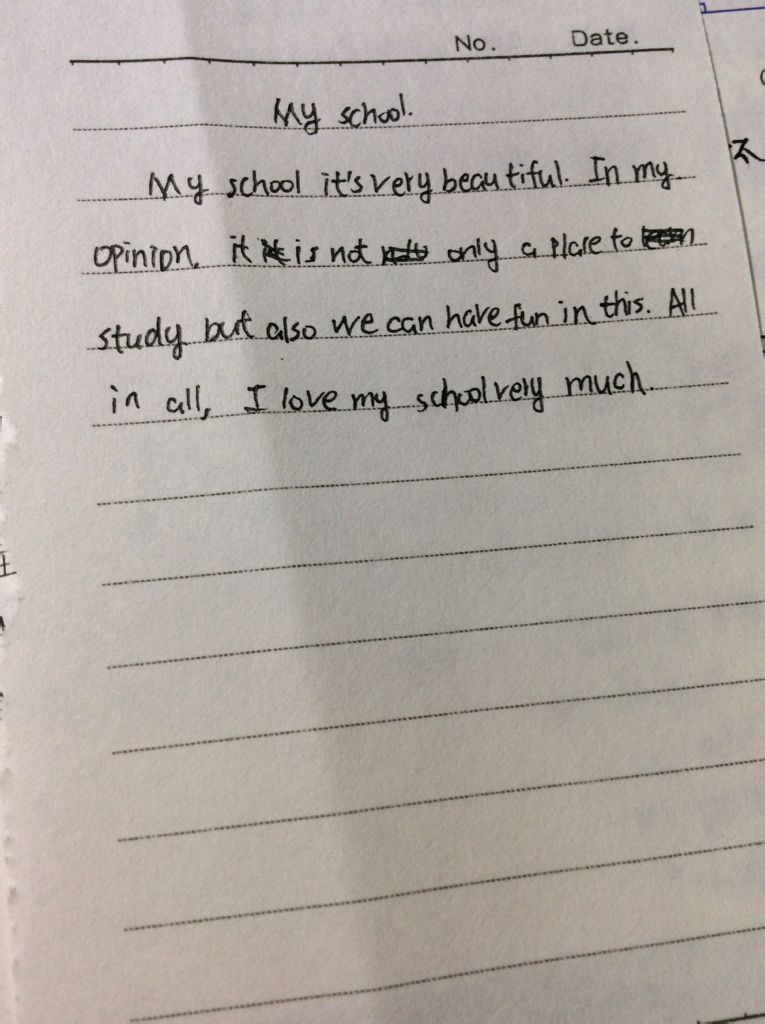 No. Date.
My school.
My school it's very beautiful. In my
opinion, it is not only a place to
study but also we can have fun in this. All
in all, I love my school very much.